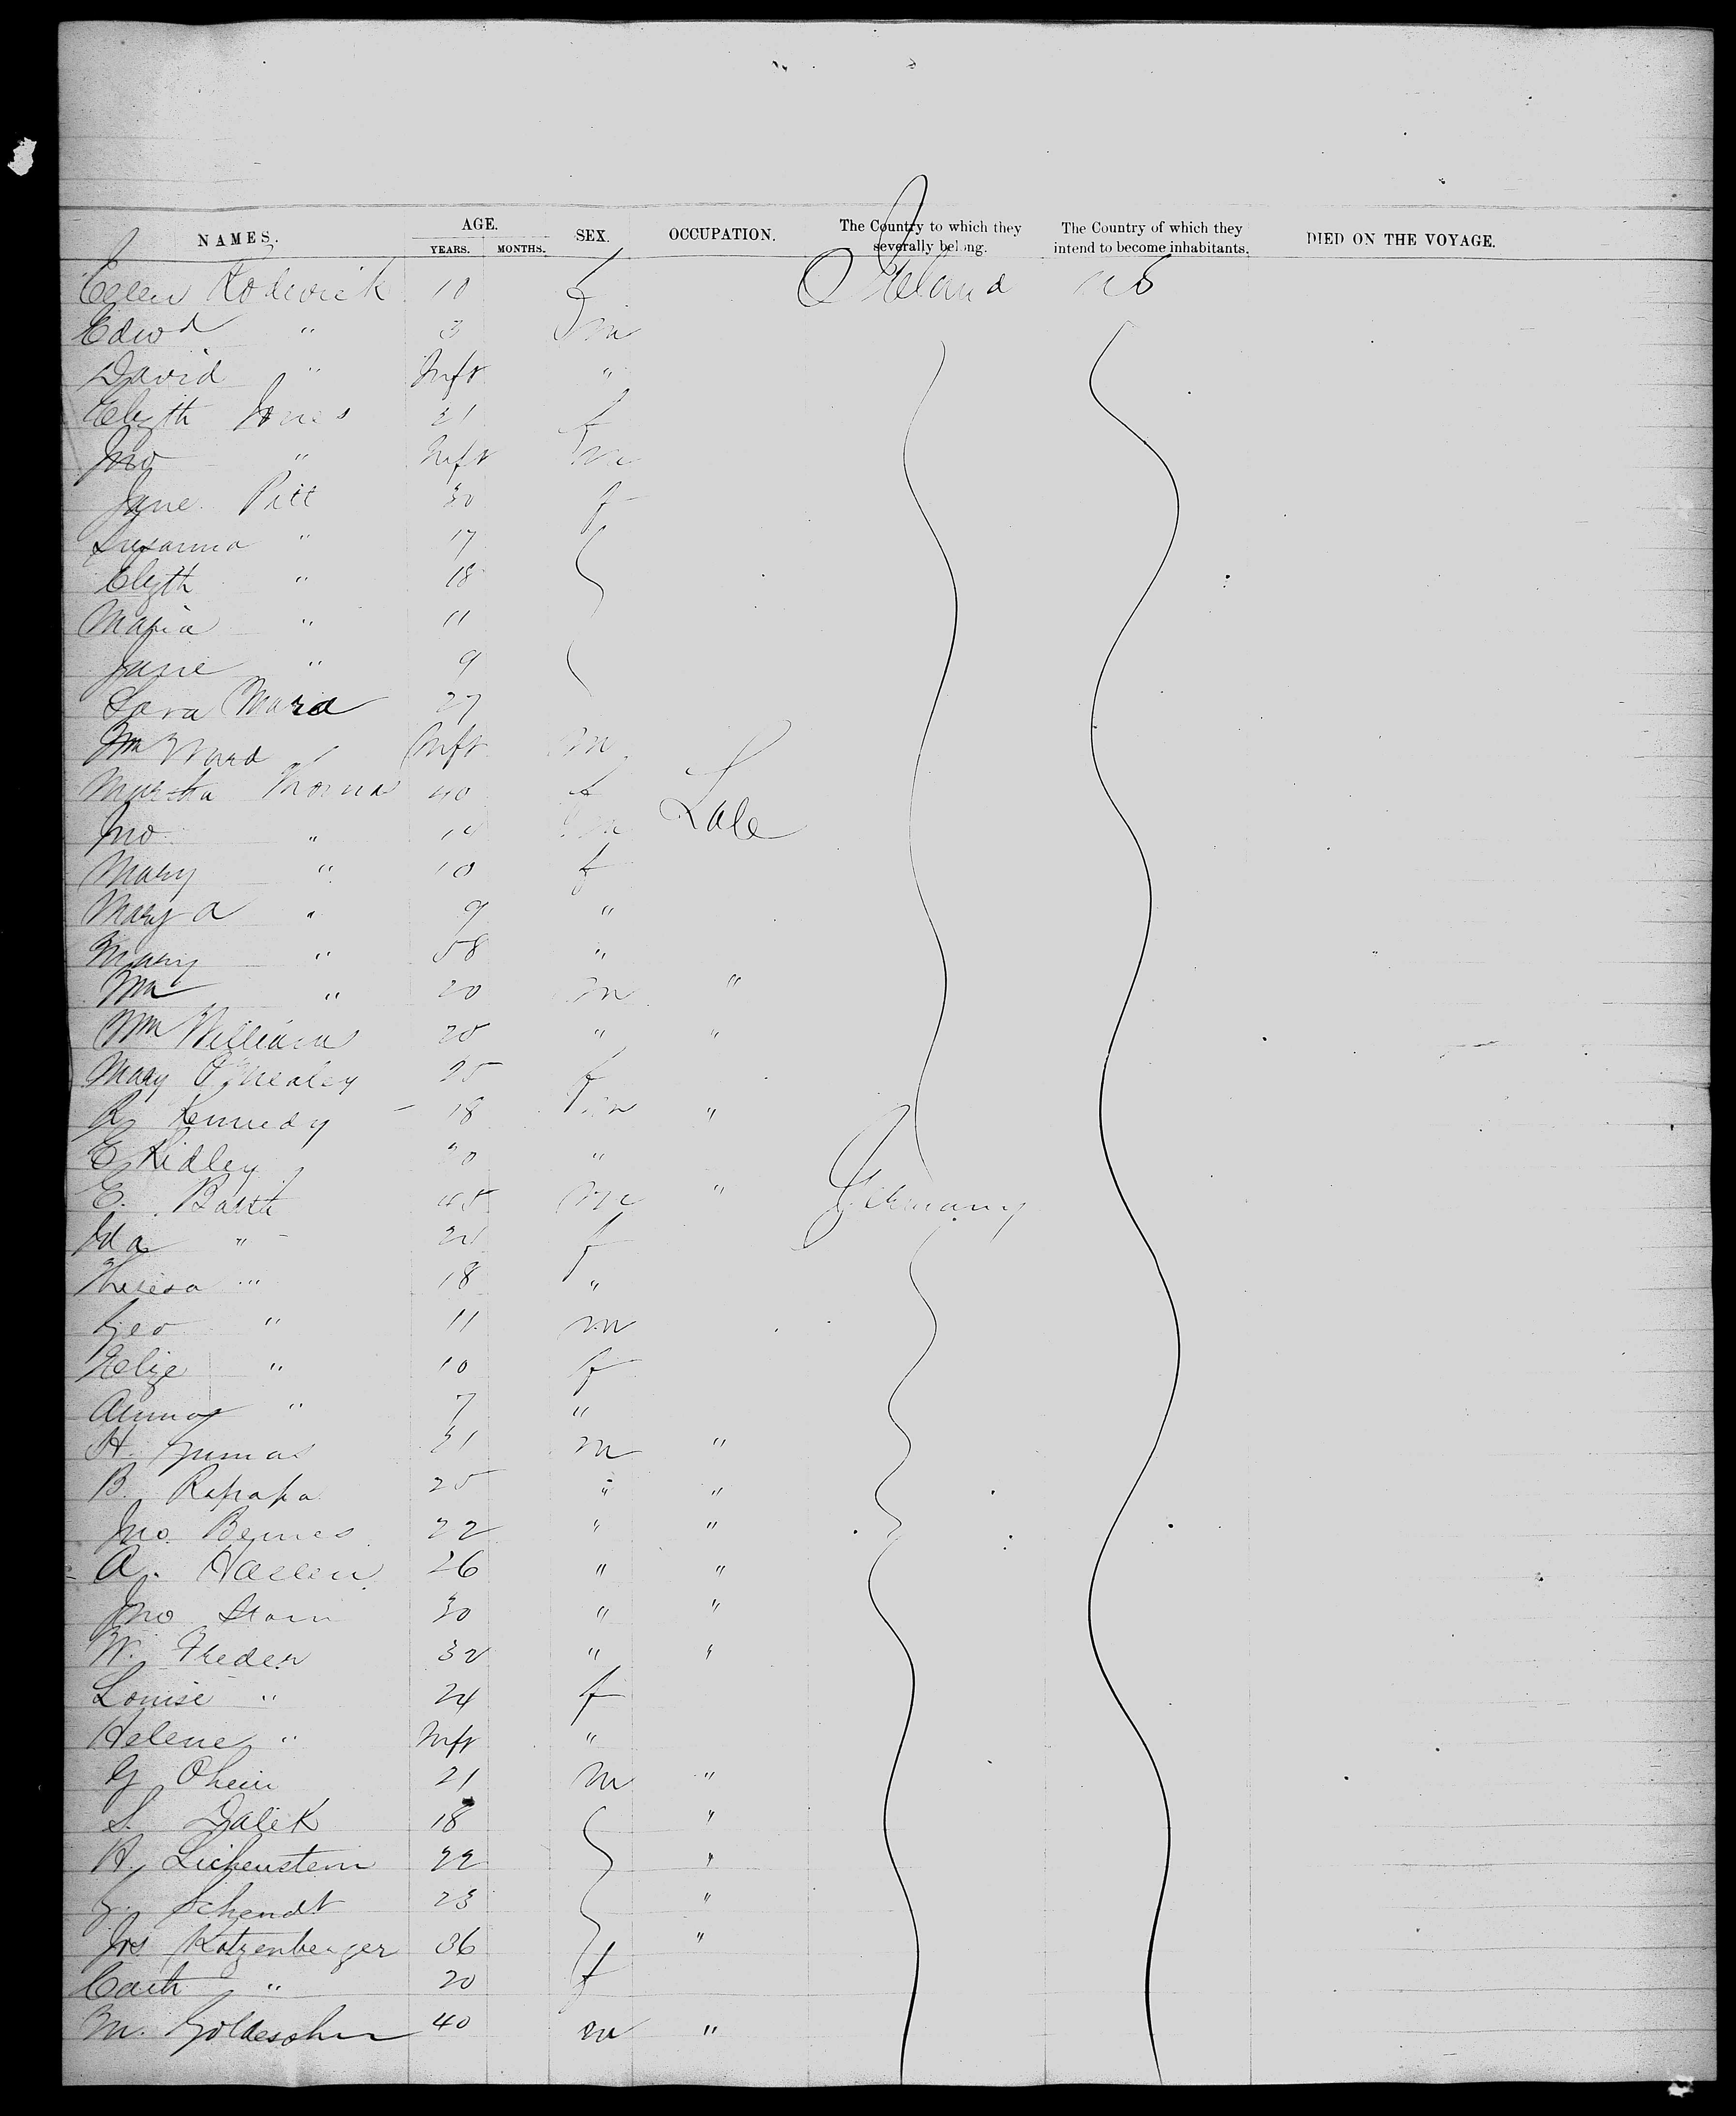 NAMES. AGE. YEARS. MONTHS. SEX. OCCUPATION. The Country to which they severally belong. The Country of which they intend to become inhabitants. DIED ON THE VOYAGE.
Ellen Rodwick 10 f Ireland US
Edwd " 3 m
David " Inft "
Elizth Jones 21 f
Jno " Inft m
Jane Pitt 30 f
Susanna " 17
Elizth " 18
Maria " 11
Jane " 9
Sara Ward 27
Wm Ward Inft m
Martha Thomas 40 f
Jno " 14 m Labr
Mary " 10 f
Mary A " 9 "
Mary " 58 "
Wm " 20 m "
Wm Williams 20 " "
Mary O'Nealey 25 f
R Kennedy 18 m "
E Ridley 30 "
E. Barth 45 m " Germany
Ida " f
Theresa " 18 "
Geo " 11 m
Elize " 10 f
" 7 "
H. 31 m "
B. 25 " "
Jno. Bernes 22 " "
A. 26 " "
Jno 30 " "
W. Freder 32 " "
Louise " 24 f
Helene " Inft "
G Ohein 21 m "
S. Dalek 18 "
H. Lichenstein 22 "
Schendt 23 "
Jos Katzenberger 36 "
Cath " 20 f
M. Goldesohn 40 m "